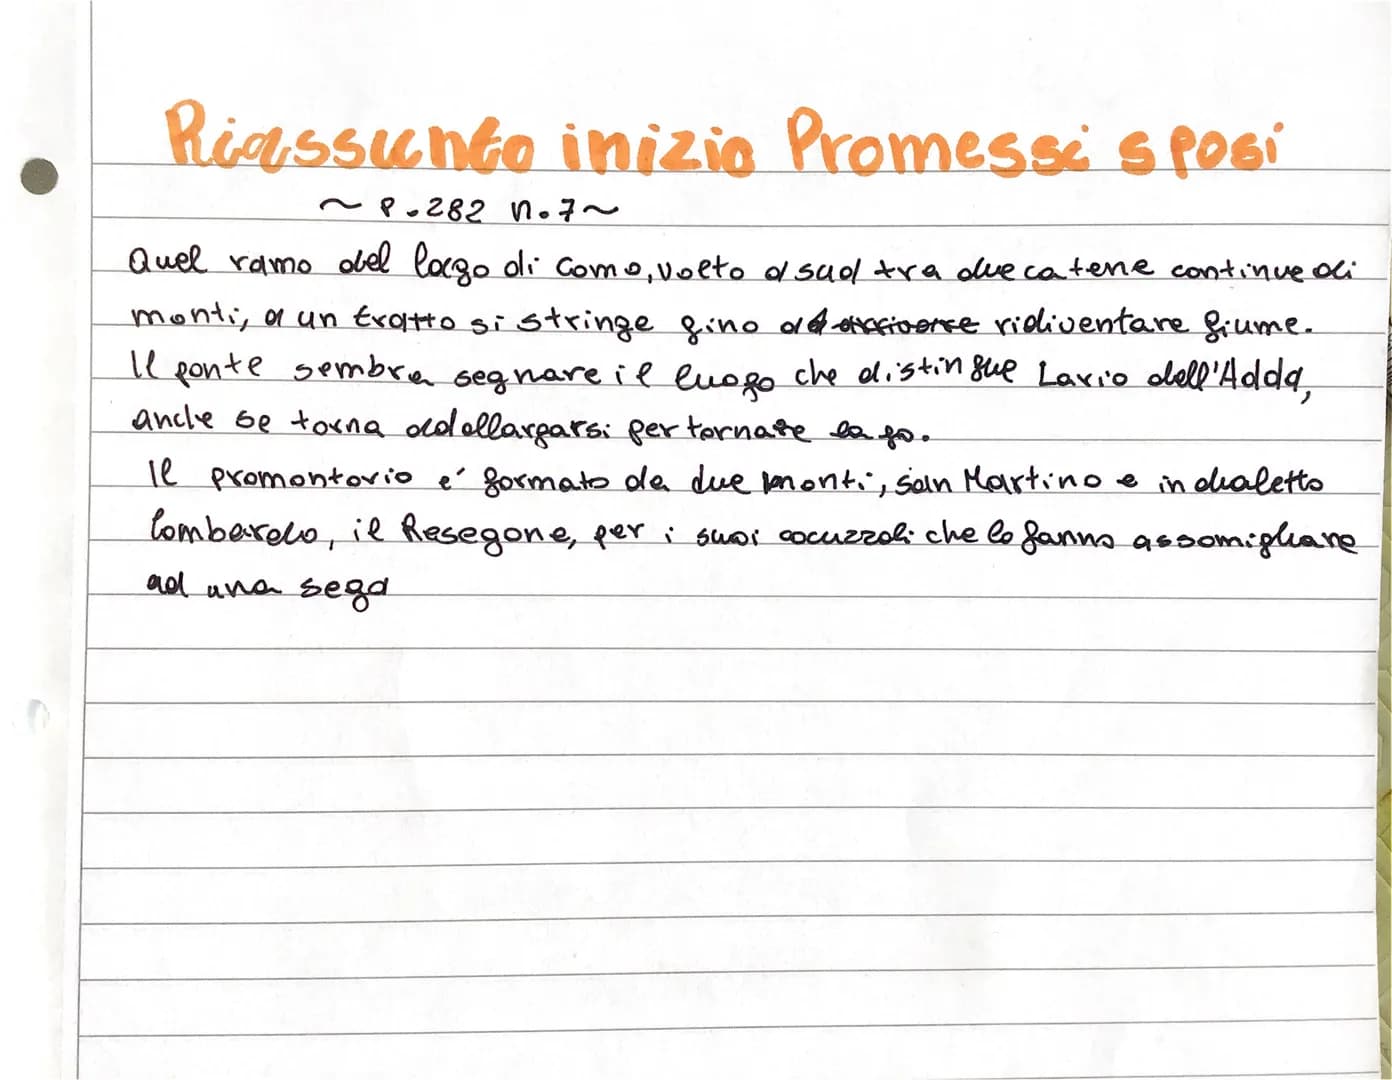 Riassunto inizio Promessi sposi
~ P.282 n.7~
Quel ramo del lago di Como, volto a sud tra due catene continue di
monti, a un tratto si stringe fino ad ridiventare fiume.
Il ponte sembra segnare il luogo che distingue Lario dell'Adda,
anche se torna ad allargarsi per tornare lago.
Il promontorio e' formato da due monti, san Martino e in dialetto
lombardo, il Resegone, per i suoi cocuzzoli che lo fanno assomigliare
ad una sega